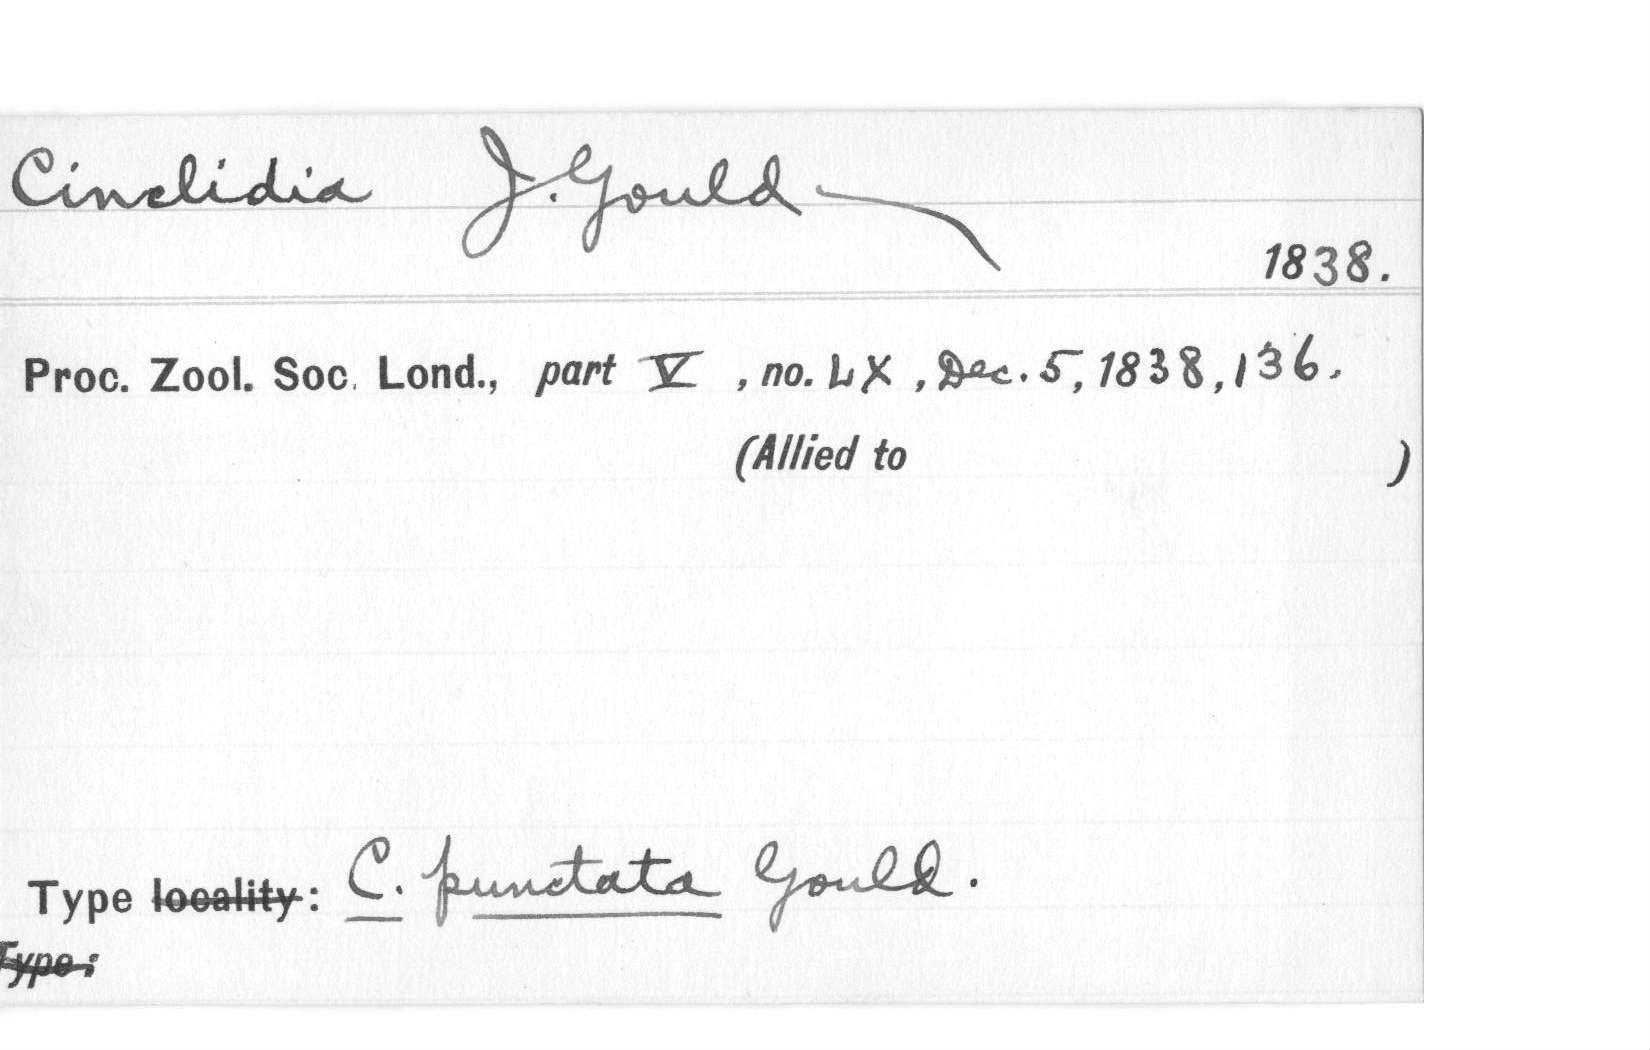 Cinclidia J. Gould
1838.
Proc. Zool. Soc. Lond., part V, no. LX, Dec. 5, 1838, 136.
(Allied to )
Type locality: C. punctata Gould.
Type: